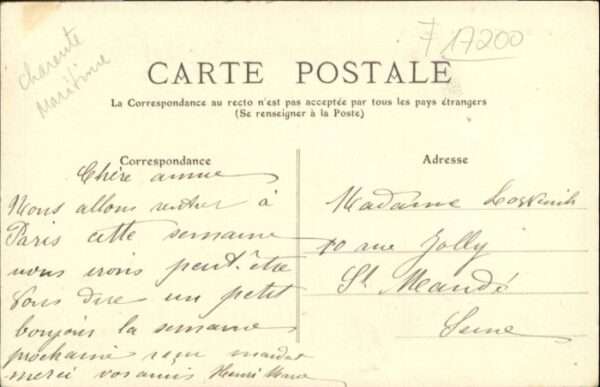 Charente
Maritime
F 17200
CARTE POSTALE
La Correspondance au recto n'est pas acceptée par tous les pays étrangers
(Se renseigner à la Poste)
Correspondance
Adresse
Chère amie
Nous allons rentrer à
Paris cette semaine
nous irons peut-être
vous dire un petit
bonjour la semaine
prochaine reçu mandat
merci vos amis Henri
Madame
10 rue Jolly
St Mandé
Seine